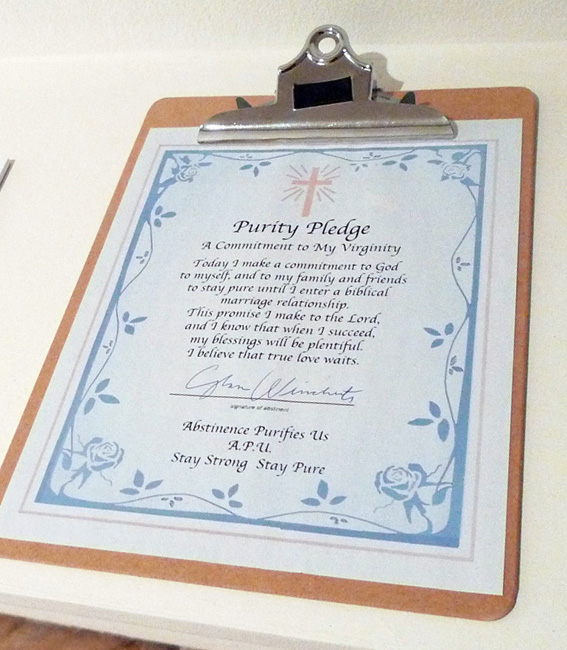 Purity Pledge
A Commitment to My Virginity
Today I make a commitment to God
to myself, and to my family and friends
to stay pure until I enter a biblical
marriage relationship.
This promise I make to the Lord,
and I know that when I succeed,
my blessings will be plentiful.
I believe that true love waits.
signature of abstinent
Abstinence Purifies Us
A.P.U.
Stay Strong Stay Pure